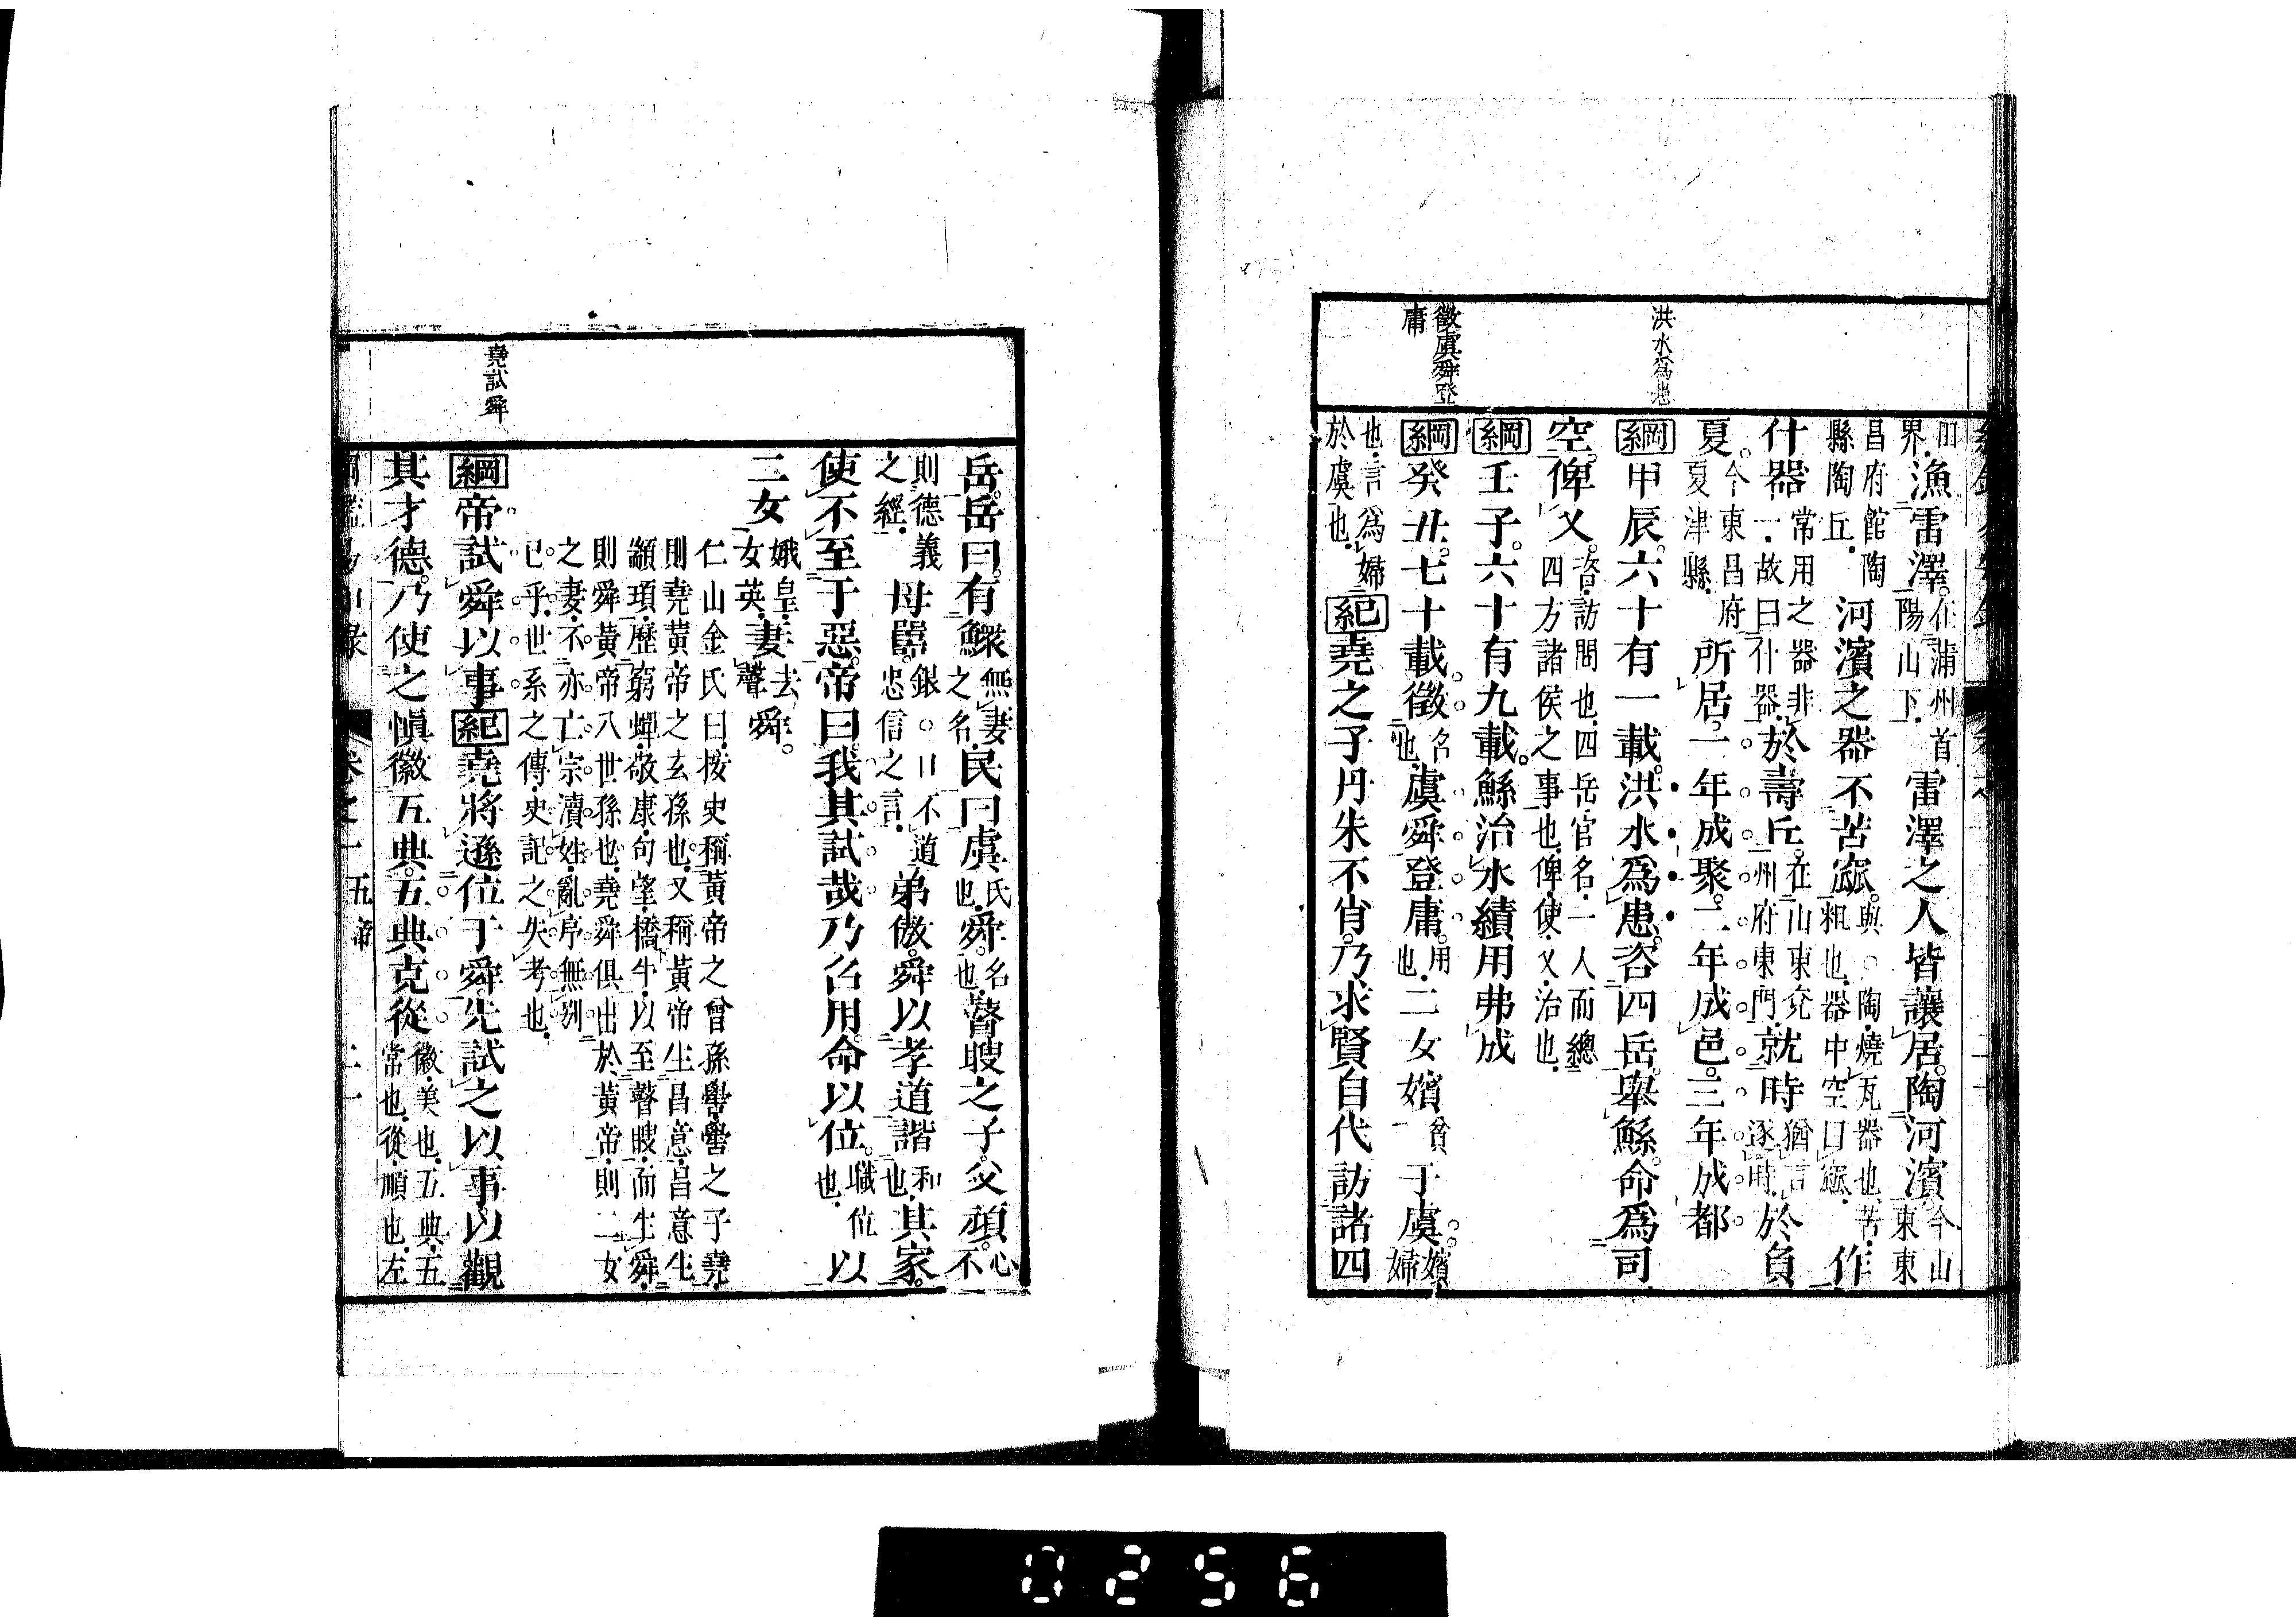 洪水爲患
徵虞舜登
庸
界漁雷澤在蒲州首陽山下雷澤之人皆讓居陶河濱今山東東
昌府館陶縣陶丘河濱之器不苦窳與○陶燒瓦器也苦粗也器中空曰窳作
什器常用之器非一故曰什器於壽丘在山東兗州府東門就時猶言逐時於負
夏今東昌府夏津縣所居一年成聚二年成邑三年成都
綱甲辰六十有一載洪水爲患咨四岳舉鯀命爲司
空俾乂咨訪問也四岳官名一人而總四方諸侯之事也俾使乂治也
綱壬子六十有九載鯀治水績用弗成
綱癸丑七十載徵名也虞舜登庸用也二女嬪貧于虞嬪婦
也言爲婦於虞也紀堯之子丹朱不肖乃求賢自代訪諸四
堯試舜
岳岳曰有鰥無妻之名民曰虞氏也舜名也瞽瞍之子父頑心不
則德義之經母嚚銀○口不道忠信之言弟傲舜以孝道諧和也其家
使不至于惡帝曰我其試哉乃召用命以位職位也以
二女娥皇女英妻去聲舜
仁山金氏曰按史稱黃帝之曾孫嚳嚳之子堯
則堯黃帝之玄孫也又稱黃帝生昌意昌意生
顓頊歷窮蟬敬康句望橋牛以至瞽瞍而生舜
則舜黃帝八世孫也堯舜俱出於黃帝則二女
之妻不亦亡宗瀆姓亂序無別
已乎世系之傳史記之失考也
綱帝試舜以事紀堯將遜位于舜先試之以事以觀
其才德乃使之愼徽五典五典克從徽美也五典五常也從順也左
卷之一 五帝